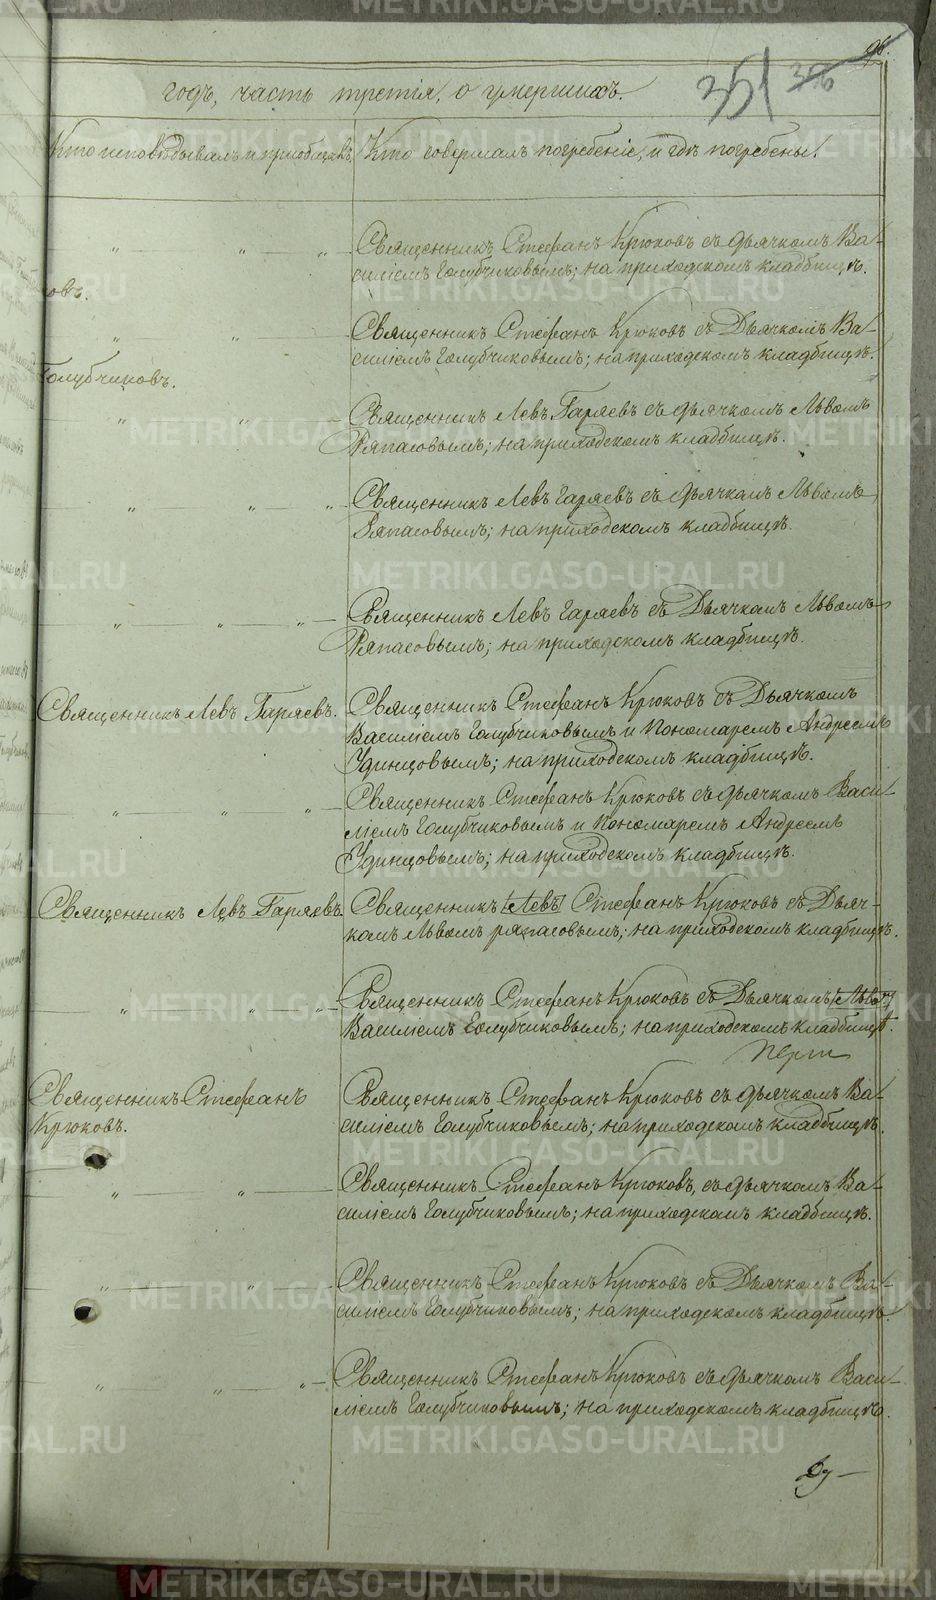 96.
351
годъ, часть третія, о умершихъ.
Кто исповѣдывалъ и пріобщалъ.
Кто совершалъ погребеніе, и гдѣ погребены.
Священникъ Стефанъ Крюковъ съ дьячкомъ Ва-
силіемъ Голубчиковымъ; на приходскомъ кладбищѣ.
овъ.
Священникъ Стефанъ Крюковъ съ Дьячкомъ Ва-
силіемъ Голубчиковымъ; на приходскомъ кладбищѣ.
Голубчиковъ.
Священникъ Левъ Гаряевъ съ дьячкомъ Львомъ
Ряпасовымъ; на приходскомъ кладбищѣ.
Священникъ Левъ Гаряевъ съ дьячкомъ Львомъ
Ряпасовымъ; на приходскомъ кладбищѣ.
Священникъ Левъ Гаряевъ съ Дьячкомъ Львомъ
Ряпасовымъ; на приходскомъ кладбищѣ.
Священникъ Левъ Гаряевъ.
Священникъ Стефанъ Крюковъ съ Дьячкомъ
Василіемъ Голубчиковымъ и Пономаремъ Андреемъ
Удинцовымъ; на приходскомъ кладбищѣ.
Священникъ Стефанъ Крюковъ съ дьячкомъ Васи-
ліемъ Голубчиковымъ и Пономаремъ Андреемъ
Удинцовымъ; на приходскомъ кладбищѣ.
Священникъ Левъ Гаряевъ
Священникъ [Левъ] Стефанъ Крюковъ съ Дьяч-
комъ Львомъ ряпасовымъ; на приходскомъ кладбищѣ.
Священникъ Стефанъ Крюковъ съ Дьячкомъ
Василіемъ Голубчиковымъ; на приходскомъ кладбищѣ.
Священникъ Стефанъ
Крюковъ.
Священникъ Стефанъ Крюковъ съ дьячкомъ Ва-
силіемъ Голубчиковымъ; на приходскомъ кладбищѣ.
Священникъ Стефанъ Крюковъ, съ дьячкомъ Ва-
силіемъ Голубчиковымъ; на приходскомъ кладбищѣ.
Священникъ Стефанъ Крюковъ съ Дьячкомъ Ва-
силіемъ Голубчиковымъ; на приходскомъ кладбищѣ.
Священникъ Стефанъ Крюковъ съ дьячкомъ Васи-
ліемъ Голубчиковымъ; на приходскомъ кладбищѣ.
METRIKI.GASO-URAL.RU